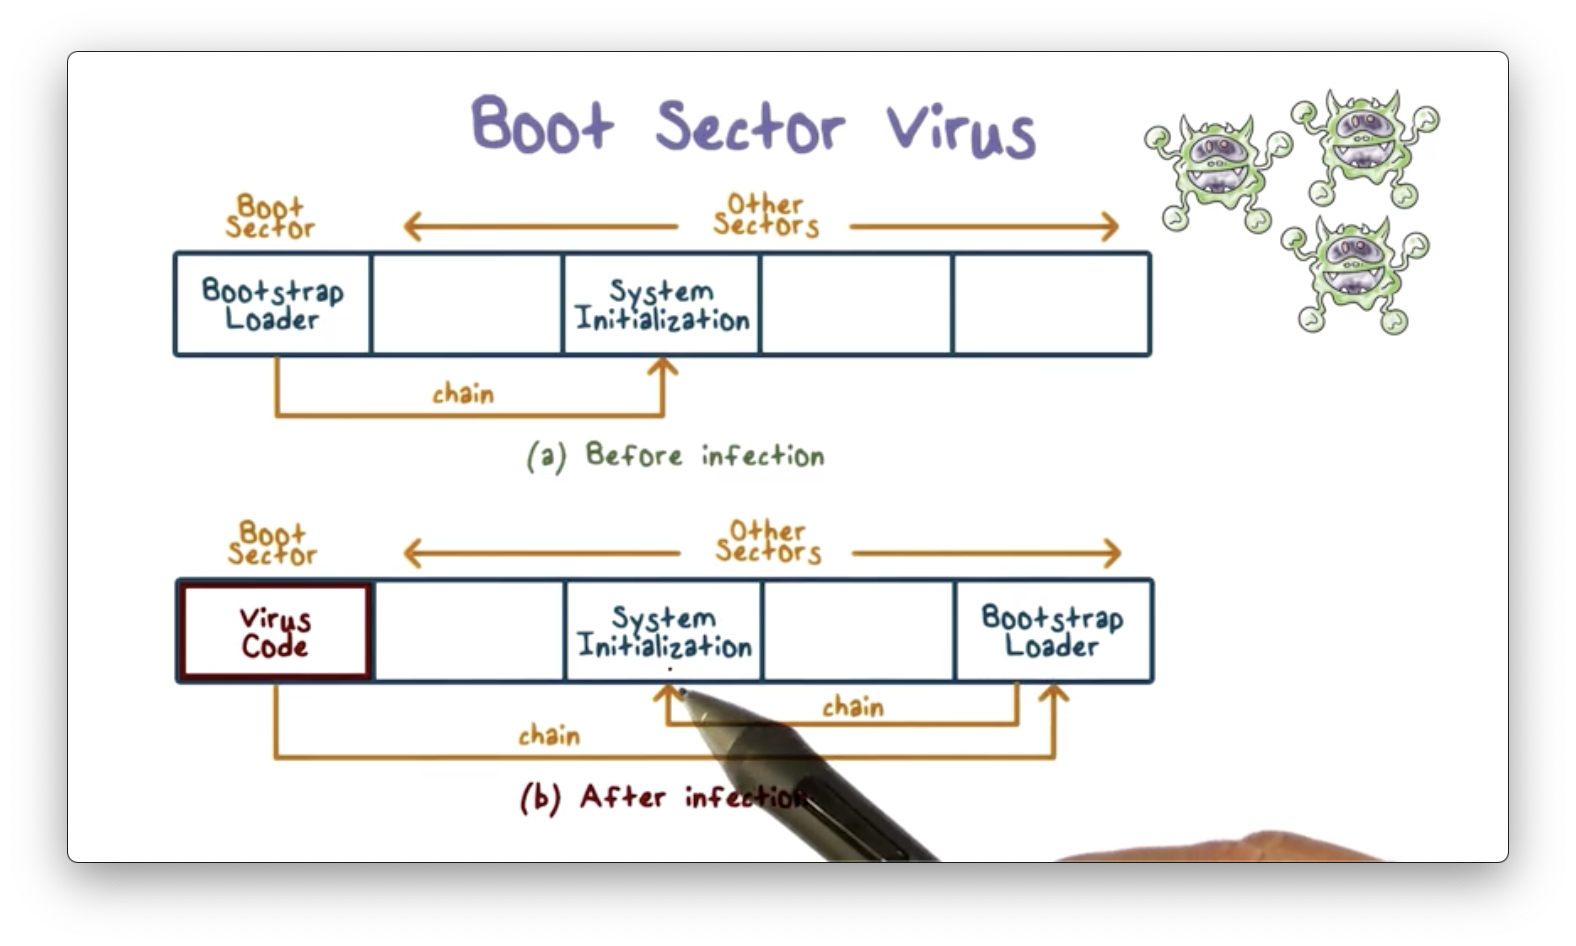 Boot Sector Virus
Boot
Sector
Other
Sectors
Bootstrap
Loader
System
Initialization
chain
(a) Before infection
Boot
Sector
Other
Sectors
Virus
Code
System
Initialization
Bootstrap
Loader
chain
chain
(b) After infection